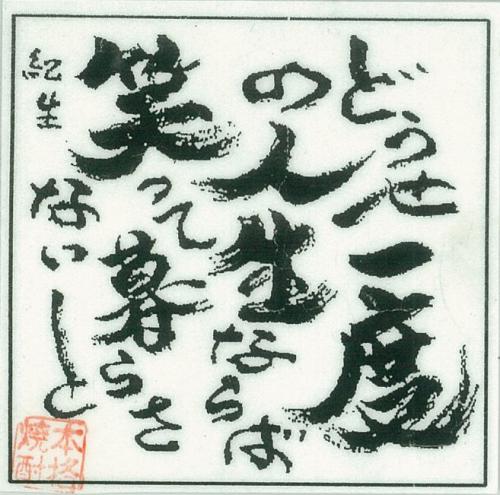 どうせ一度
の人生ならば
笑って暮らさ
ないと
紀生
本格
焼酎